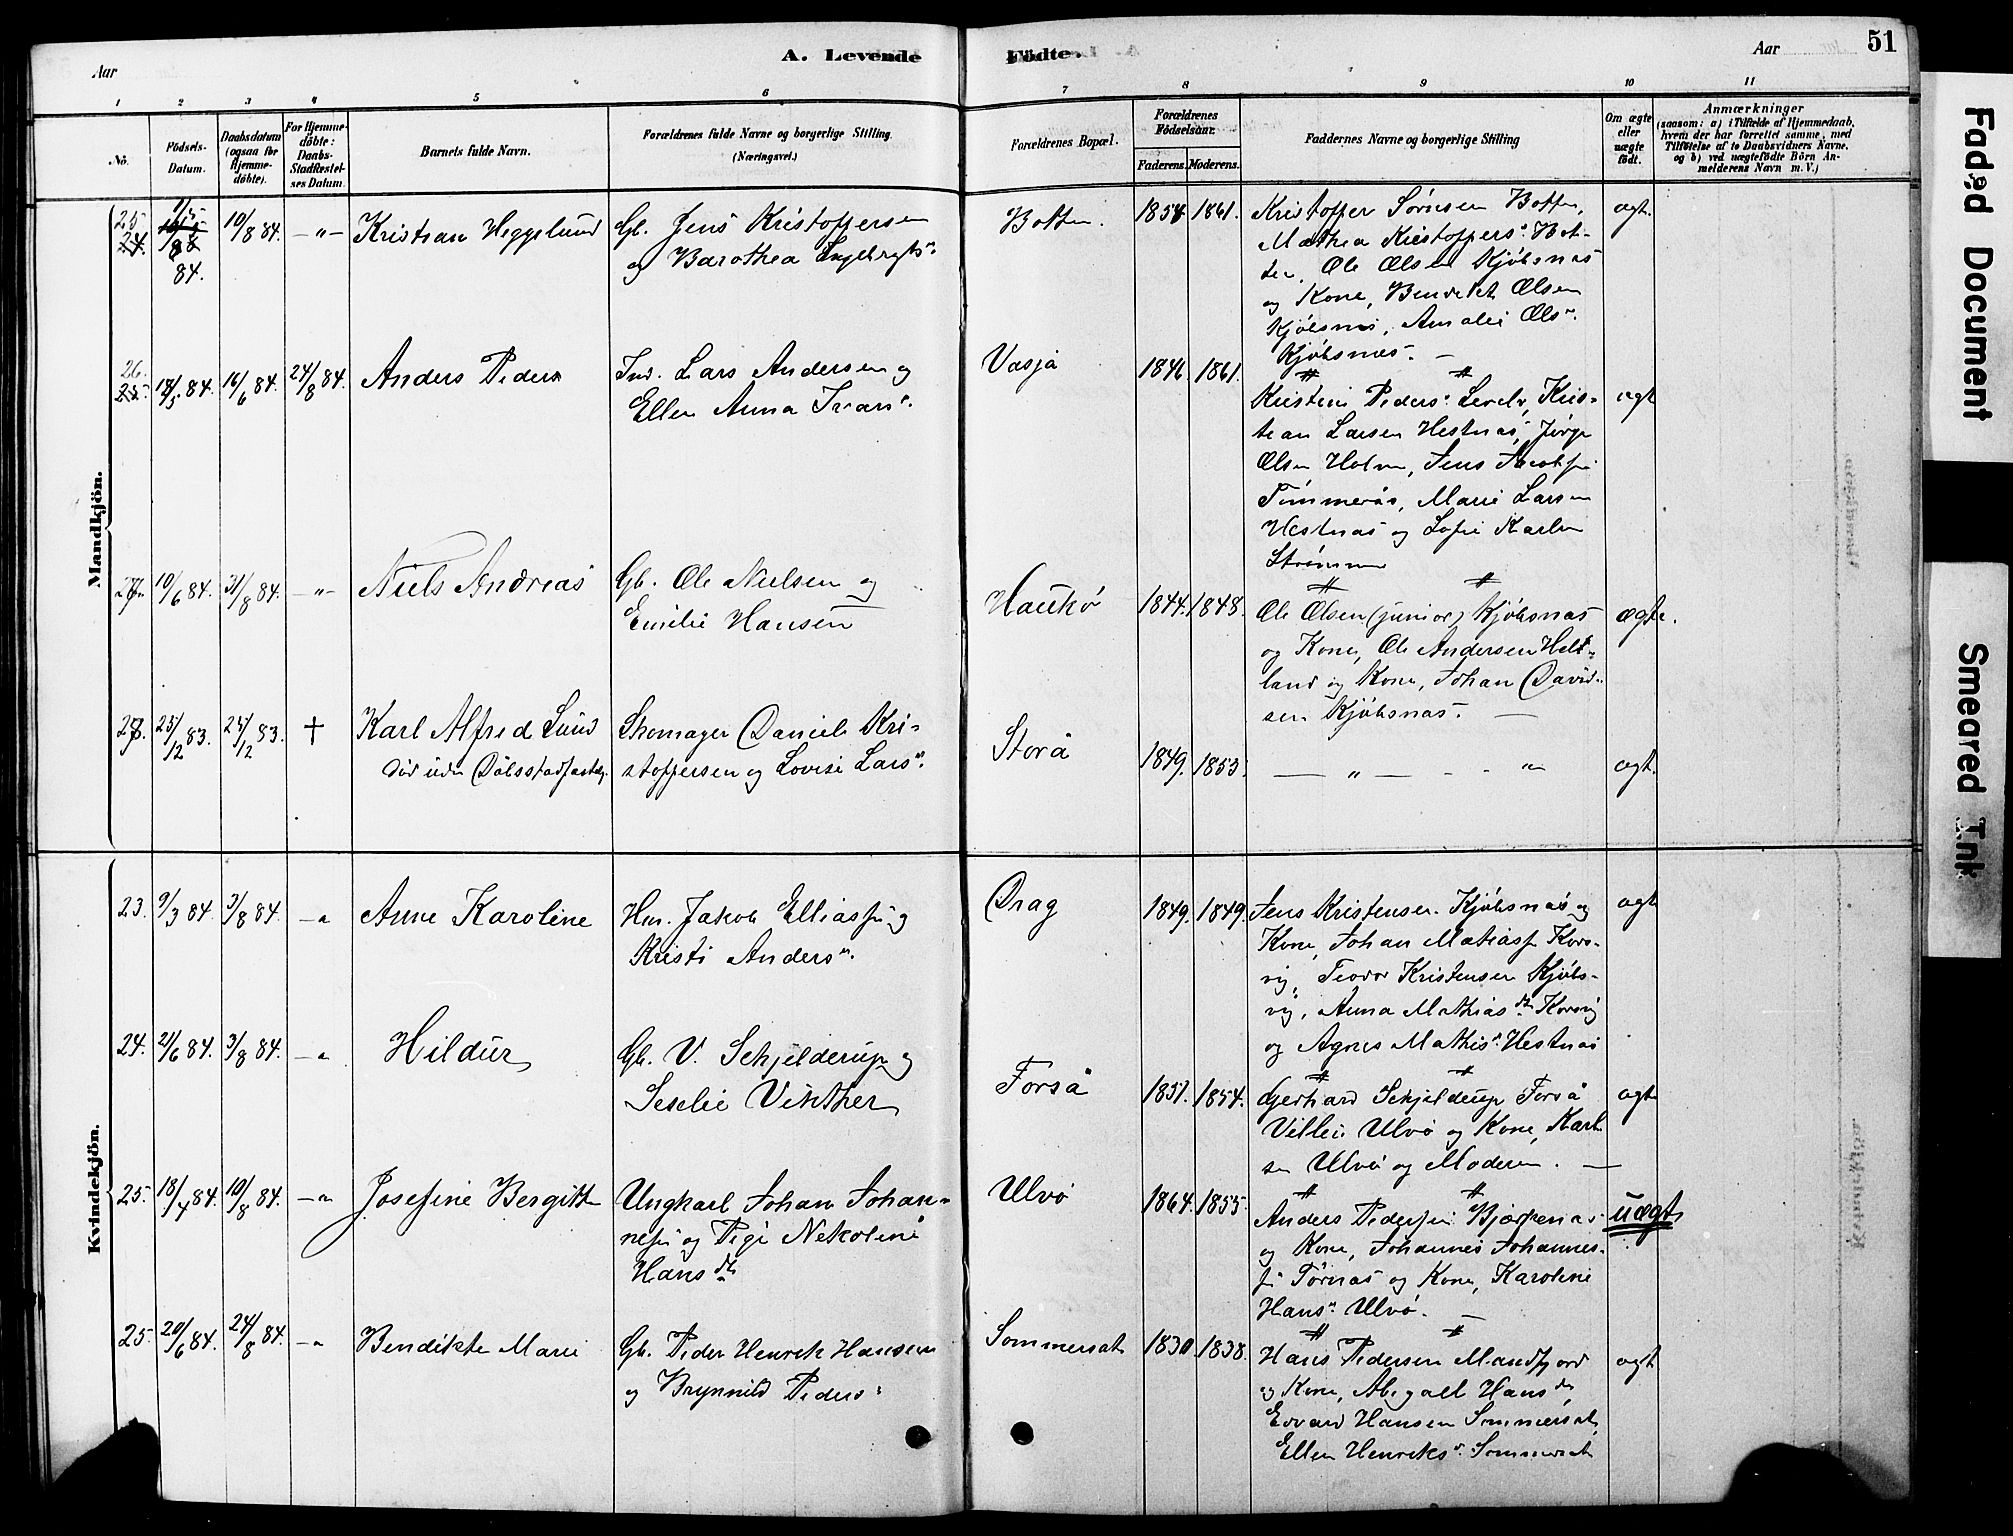 A. Levende Fødte.
Aar
Aar
51
1 2 3 4 5 6 7 8 9 10 11
No.
Födsels-
Datum.
Daabsdatum
(ogsaa for
Hjemme-
döbte).
For Hjemme-
döbte:
Daabs-
Stadfæstel-
ses Datum.
Barnets fulde Navn.
Forældrenes fulde Navne og borgerlige Stilling.
(Næringsvei.)
Forældrenes Bopæl.
Forældrenes
Födselsaar.
Faderens. Moderens.
Faddernes Navne og borgerlige Stilling
Om ægte
eller
uægte
födt.
Anmærkninger
(saasom: a) i Tilfælde af Hjemmedaab,
hvem der har forrettet samme, med
Tilföielse af to Daabsvidners Navne,
og b) ved uægtefödte Börn An-
melderens Navn m. V.)
Mandkjön.
25.
84.
10/8 84.
Kristian Heggelund
Gb. Jens Kristoffersen
og Barothea Engebregts
Botten.
1854. 1861.
Kristoffer Sørnsen Botten,
Mathea Kristoffers. Bot-
ten, Ole Olsen Kjøbsnas
og Kone, Bendikt Olsen
Kjøbsnas, Amalie Ols.
Kjøbsnes.
ægt.
26.
18/5 84. 16/6 84. 24/8 84.
Anders Peder
Ind. Lars Andersen og
Ellen Anna Ivars.
Vasja
1846. 1861.
Kristine Peders. Levelv, Kris-
tian Larsen Hestnas, Jørgen
Olsen Holm, Jens Jacobsen
Timmerås, Marie Larsen
Hestnas og Sofie Karlsen
Strømmen
ægt
27.
10/6 84. 31/8 84.
Niels Andreas
Gb. Ole Nielsen og
Emilie Hansen
Haukø
1844. 1848.
Ole Olsen (junior) Kjøbsnas
og Kone, Ole Andersen Helt-
land og Kone, Johan David-
sen Kjøbsnas.
ægte.
25/12 83. 25/12 83.
†
Karl Alfred Lund
død uden Dåbsstadfæstelse.
Skomager Daniel Kri-
stoffersen og Lovise Lars.
Storå
1849. 1853.
ægt.
Kvindekjön.
23.
9/3 84. 3/8 84.
Anne Karoline
Hm. Jakob Elliassen og
Kristi Anders.
Drag
1849. 1849.
Jens Kristensen Kjøbsnas og
Kone, Johan Matiassen Kors-
vig, Teodor Kristensen Kjøbs-
vig, Anna Mathias dt. Korsvig
og Agnes Mathis. Hestnas
ægt
24.
21/6 84. 3/8 84.
Hildur
Gb. V. Schjelderup og
Seselie Vinther
Forså
1851. 1854.
Gerhard Schjelderup Forså
Ulvø og Kone, Karl-
sen Ulvø og Moderen.
ægt
25.
18/4 84. 10/8 84.
Josefine Bergitte
Ungkarl Johan Johan-
nesen og Pige Nekoline
Hans dt.
Ulvø
1864. 1855.
Anders Pedersen Bjerkenas
og Kone, Johannes Johannes-
sen Tørnas og Kone, Karoline
Hans. Ulvø.
uægt
25.
20/6 84. 24/8 84.
Bendikte Marie
Gb. Peder Henrik Hansen
og Brynnild Peders.
Sommersat
1830. 1838.
Hans Pedersen Mandfjord
og Kone, Abigael Hans dt.
Edvard Hansen Sommersat,
Ellen Henriks. Sommersat
ægt
Faded Document
Smeared Ink